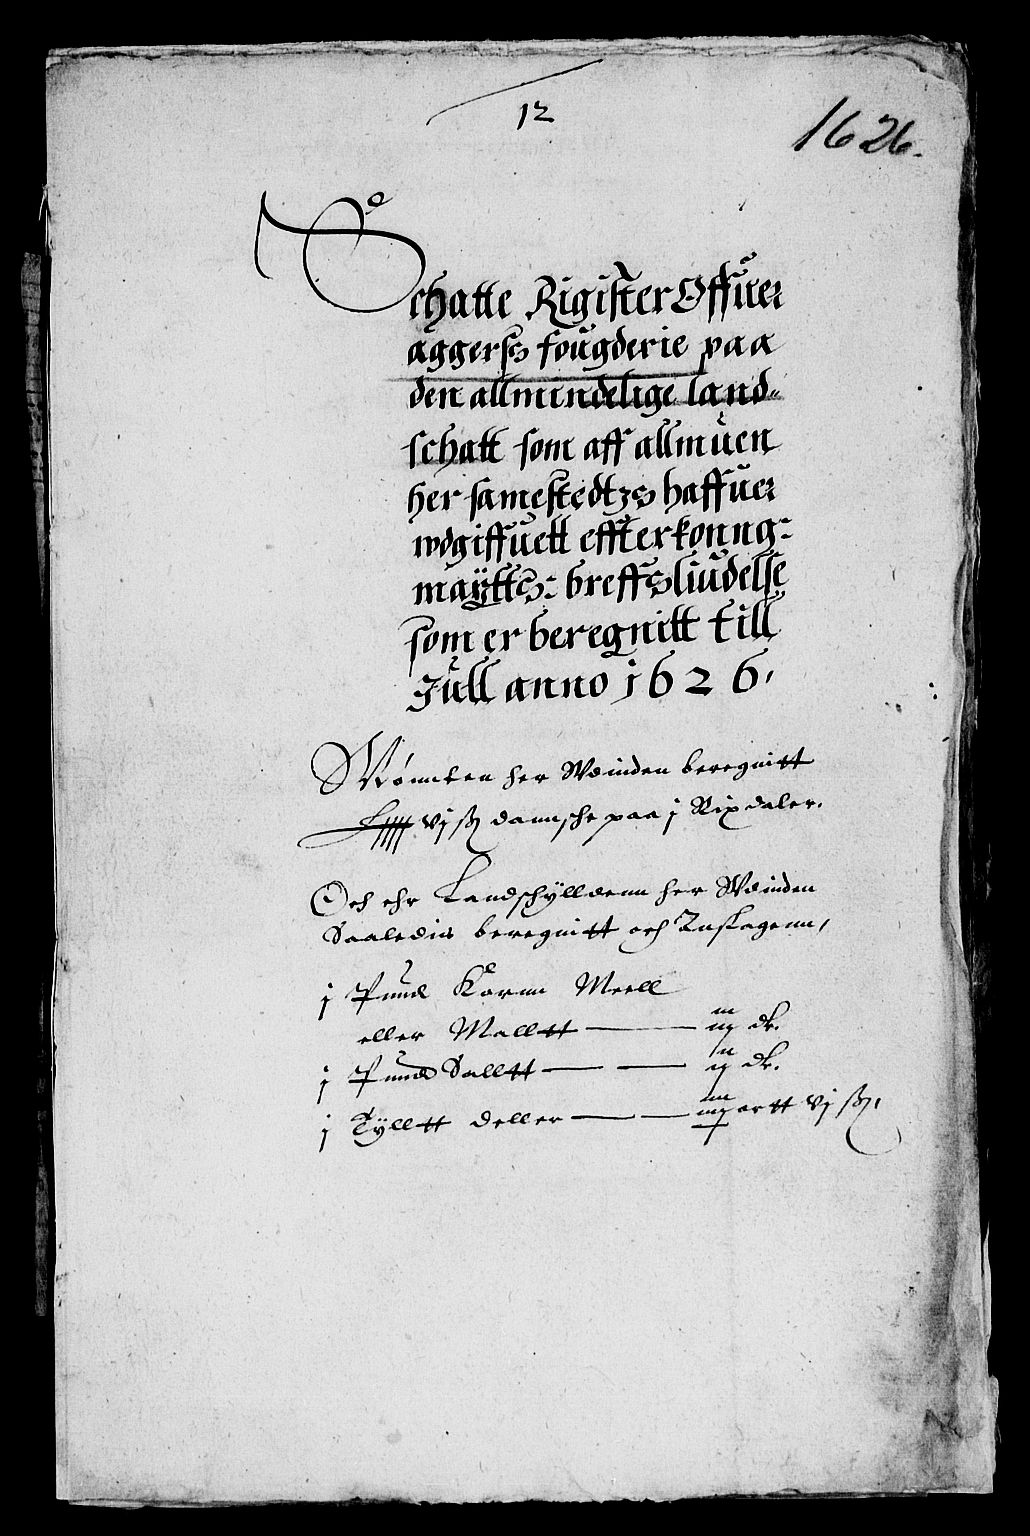 12
1626.
Schatte Rigister Offuer
aggerss fougderie paa
den allmindelige land-
schatt som aff allmuen
her samestedtzs haffuer
wdgiffuett effter konng:
mayttes: breffs liudelse
som er beregnitt till
Jull anno 1626.
Mønnten her Wdinden beregnitt
vj ß dannsche paa j Rixdaler.
Och ehr Landschylldenn her Wdinden
Saaledis beregnitt och Anslagenn,
j Pund Kornn Meell
eller Malltt dr.
j Pund Salltt dr.
j Tylltt deller ortt vj ß,